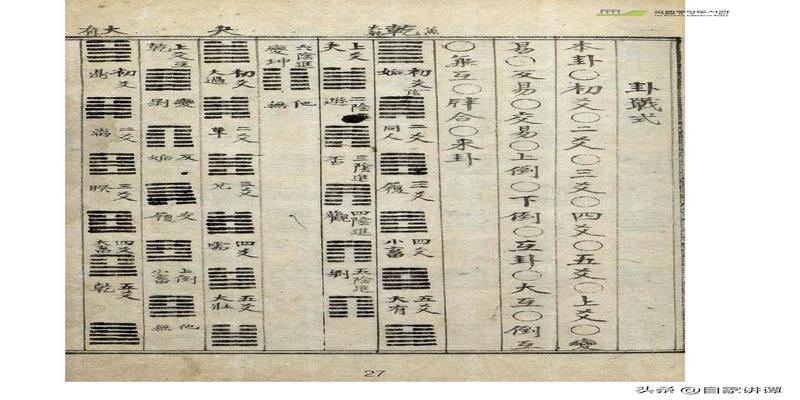 卦 式
本卦〇初爻〇二爻〇三爻〇四爻〇五爻〇上爻〇變
易〇反易〇交易〇上倒〇下倒〇互卦〇大互〇倒互
〇 互〇牉合〇來卦
乾
初爻 姤
二爻 同人
三爻 履
四爻 小畜
五爻 大有
上爻 夬
二陰進 遯
三陰進 否
四陰進 觀
五陰進 剝
六陰進 變坤
他無
夬
初爻 大過
二爻 革
三爻 兌
四爻 需
五爻 大壯
上爻 乾
變 剝
反 姤
交 履
上倒 小畜
他無
大有
初爻 鼎
二爻
三爻 睽
四爻 大畜
五爻 乾
27
국립중앙도서관
THE NATIONAL LIBRARY OF KOREA
头条 @自家讲谭